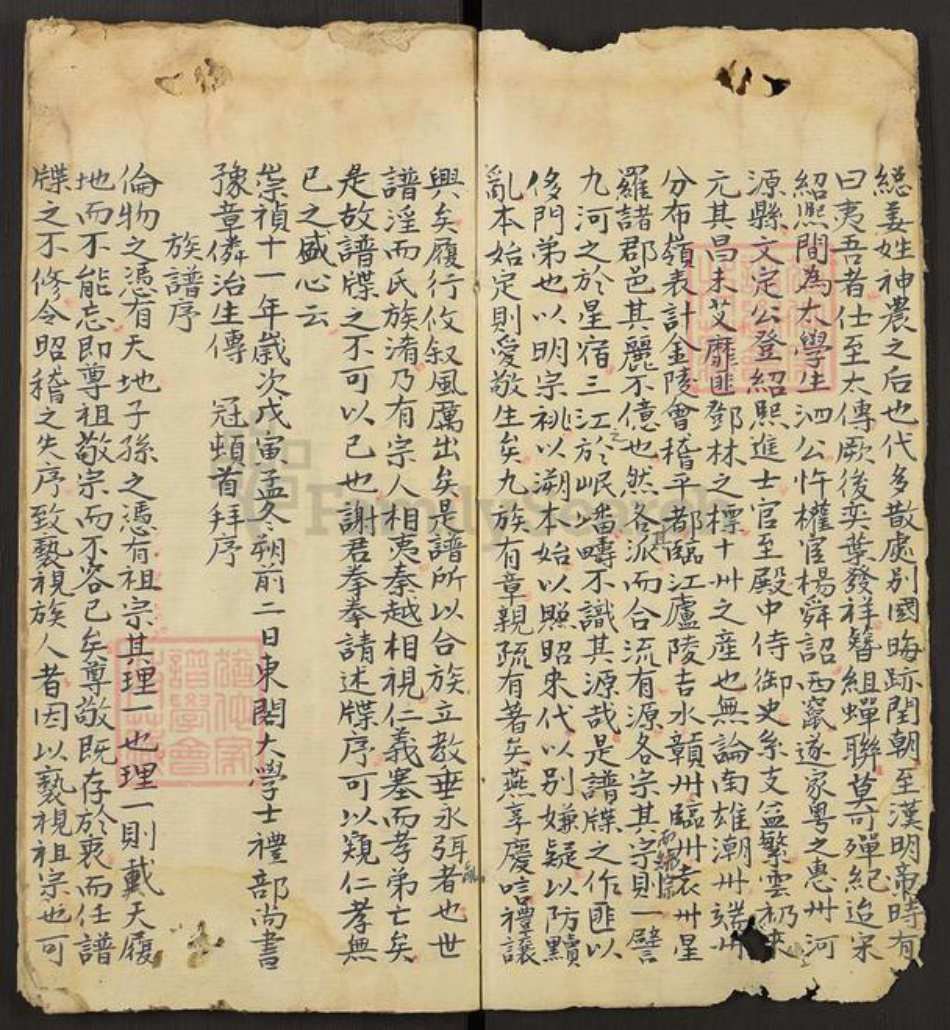 緦姜姓神農之后也代多散處別國晦跡閏朝至漢明帝時有
曰夷吾者仕至太傳厥後奕葉發祥簪組蟬聯莫可殫紀迨宋
紹熙間為太學生泗公忤權官楊舜詔西竄遂家粵之惠卅河
源縣文定公登紹熙進士官至殿中侍御史系支益繁雲礽
元其昌未艾靡匪鄧林之標十卅之產也無論南雄潮卅端卅
分布嶺表計金陵會稽平都臨江廬陵吉水贛卅臨卅袁卅星
羅諸郡邑其麗不億也然各派而合流有源各宗其宗則一譬
九河之於星宿三江之於岷嶓疇不識其源哉是譜牒之作匪以
侈門弟也以明宗祧以溯本始以照昭來代以別嫌疑以防黷
亂本始定則愛敬生矣九族有章親疏有著矣燕享慶唁禮讓
興矣履行攸叙風厲出矣是譜所以合族立教垂永弭者也世
譜淫而氏族淆乃有宗人相夷秦越相視仁義塞而孝弟亡矣
是故譜牒之不可以已也謝君拳拳請述牒序可以窺仁孝無
已之盛心云
崇禎十一年歲次戊寅孟冬朔前二日東閣大學士禮部尚書
豫章僯治生傳 冠頓首拜序
族譜序
倫物之憑有天地子孫之憑有祖宗其理一也理一則戴天履
地而不能忘即尊祖敬宗而不容已矣尊敬既存於衷而任譜
牒之不修令昭穆之失序致褻視族人者因以褻視祖宗也可
FamilySearch